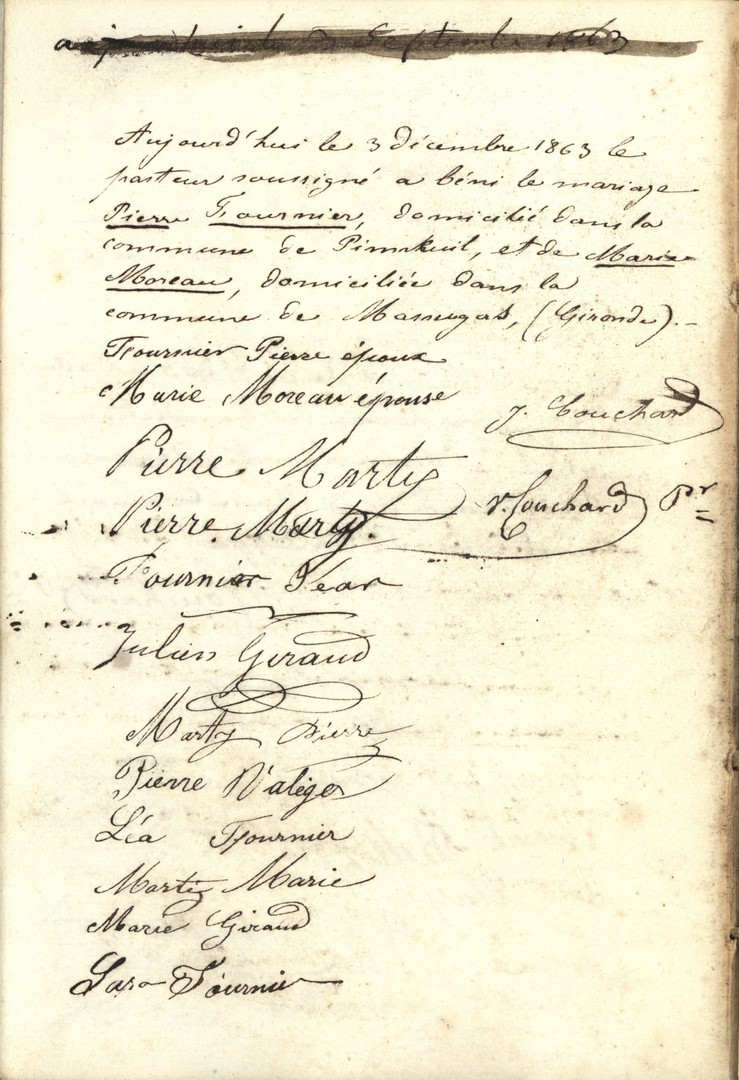 Septembre 1863
Aujourd'hui le 3 décembre 1863 le
pasteur soussigné a béni le mariage
Pierre Fournier, domicilié dans la
commune de Pimekeuil, et de Marie
Moreau, domiciliée dans la
commune de Massugas, (Gironde). –
Fournier Pierre époux
Marie Moreau épouse
J. Couchard
Pierre Marty
Pierre Marty.
V. Couchard Pr
Fournier Jean
Julien Giraud
Marty Pierre
Pierre
Léa Fournier
Marty Marie
Marie Giraud
Sara Fournier